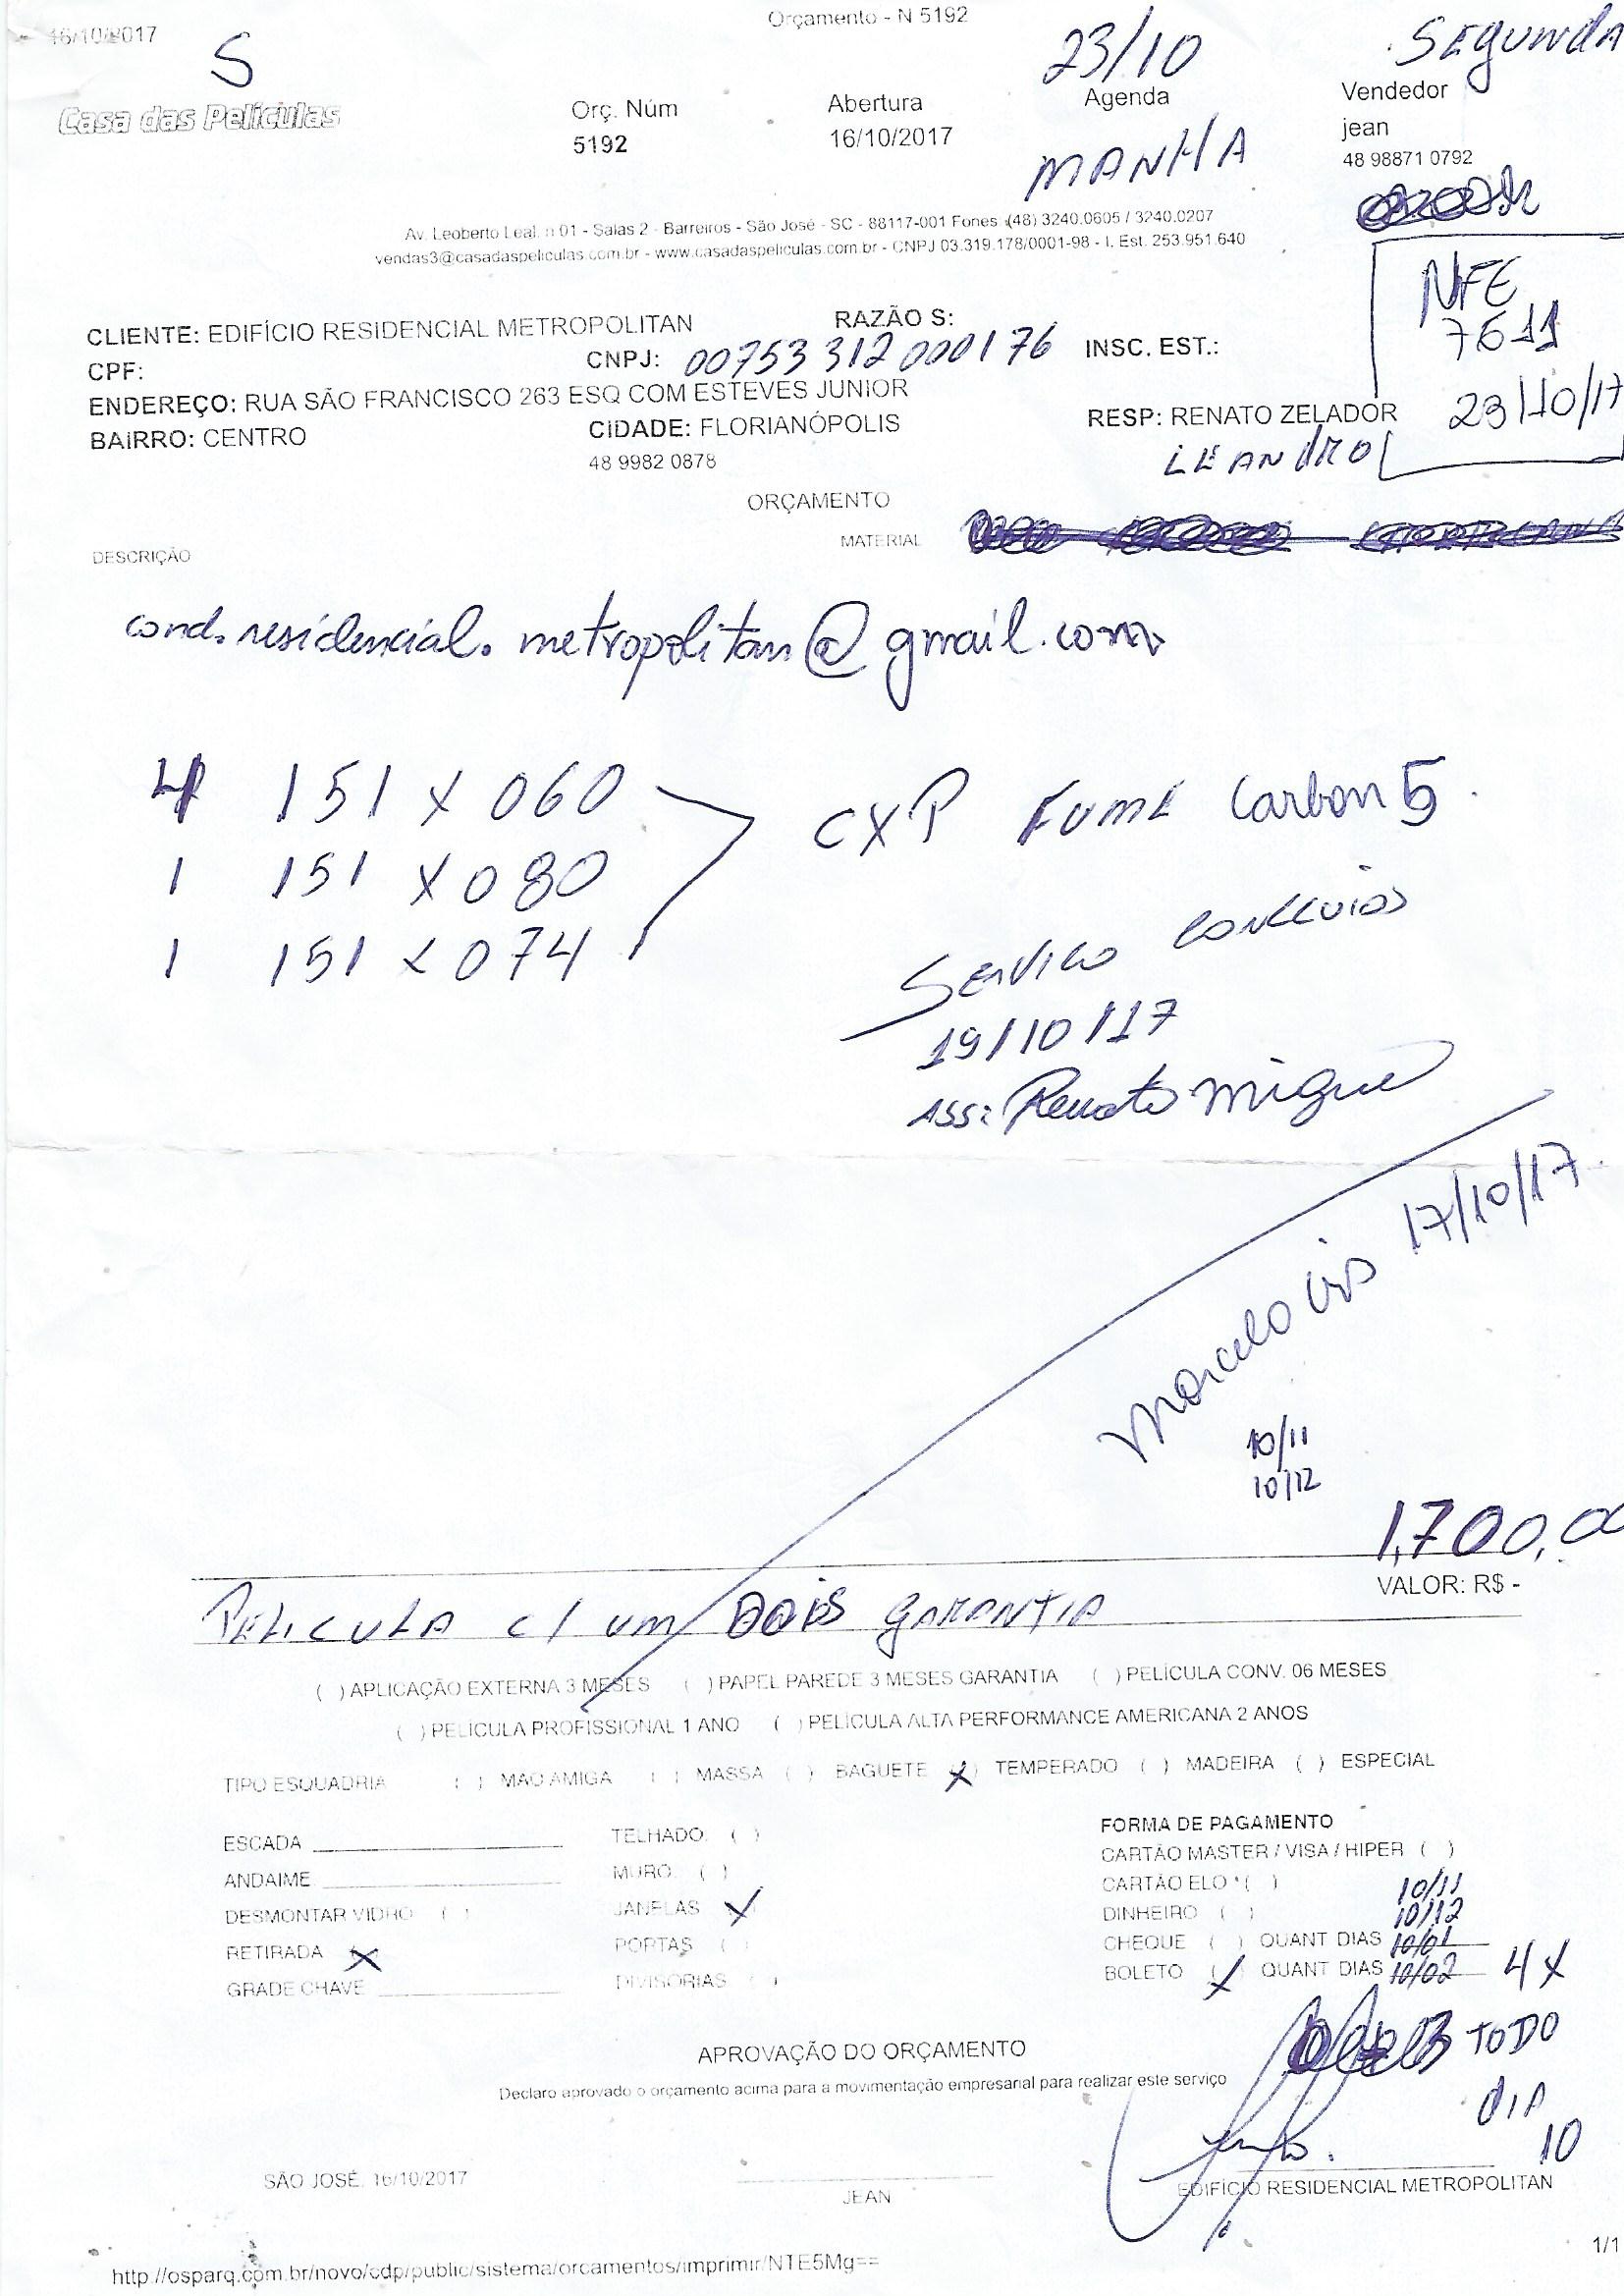 16/10/2017
Orçamento - N 5192
S
23/10
SEGUNDA
Casa das Películas
Orç. Núm
5192
Abertura
16/10/2017
Agenda
MANHA
Vendedor
jean
48 98871 0792
Av. Leoberto Leal, n 01 - Salas 2 - Barreiros - São José - SC - 88117-001 Fones (48) 3240.0605 / 3240.0207
vendas3@casadaspeliculas.com.br - www.casadaspeliculas.com.br - CNPJ 03.319.178/0001-98 - I. Est. 253.951.640
NFE
7611
23/10/17
CLIENTE: EDIFÍCIO RESIDENCIAL METROPOLITAN RAZÃO S:
CPF: CNPJ: 00753 312 000176 INSC. EST.:
ENDEREÇO: RUA SÃO FRANCISCO 263 ESQ COM ESTEVES JUNIOR
BAIRRO: CENTRO CIDADE: FLORIANÓPOLIS RESP: RENATO ZELADOR
48 9982 0878 LEANDRO
ORÇAMENTO
DESCRIÇÃO MATERIAL
cond.residencial.metropolitan@gmail.com
4 151 x 060
1 151 x 080
1 151 x 074
CXP FUME Carbon 5.
SERVICO
19/10/17
ASS: Renato Miguel
Marcelo 17/10/17.
10/11
10/12
1,700,00
VALOR: R$ -
PELICULA C/ UM DOIS GARANTIA
( ) APLICAÇÃO EXTERNA 3 MESES ( ) PAPEL PAREDE 3 MESES GARANTIA ( ) PELÍCULA CONV. 06 MESES
( ) PELÍCULA PROFISSIONAL 1 ANO ( ) PELÍCULA ALTA PERFORMANCE AMERICANA 2 ANOS
TIPO ESQUADRIA ( ) MAO AMIGA ( ) MASSA ( ) BAGUETE (X) TEMPERADO ( ) MADEIRA ( ) ESPECIAL
ESCADA
ANDAIME
DESMONTAR VIDRO ( )
RETIRADA (X)
GRADE CHAVE
TELHADO ( )
MURO ( )
JANELAS (X)
PORTAS ( )
DIVISORIAS ( )
FORMA DE PAGAMENTO
CARTÃO MASTER / VISA / HIPER ( )
CARTÃO ELO ( ) 10/11
DINHEIRO ( ) 10/12
CHEQUE ( ) QUANT DIAS 10/01
BOLETO (X) QUANT DIAS 10/02 4X
TODO
DIA
10
APROVAÇÃO DO ORÇAMENTO
Declaro aprovado o orçamento acima para a movimentação empresarial para realizar este serviço
SÃO JOSÉ, 16/10/2017
JEAN
EDIFÍCIO RESIDENCIAL METROPOLITAN
http://osparq.com.br/novo/cdp/public/sistema/orcamentos/imprimir/NTE5Mg==
1/1